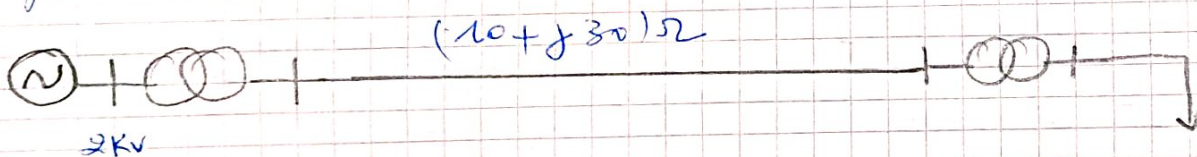 (10+j30)Ω
2KV